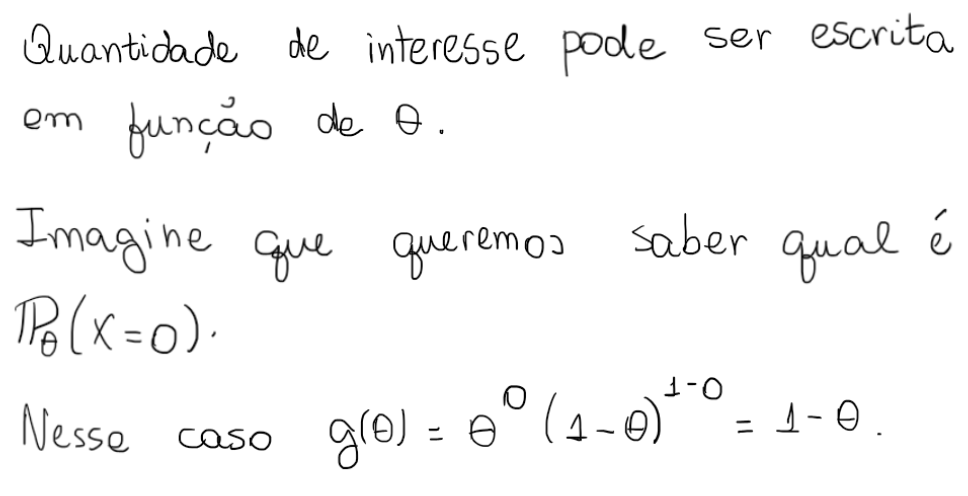 Quantidade de interesse pode ser escrita
em função de θ.
Imagine que queremos saber qual é
ℙ_θ(X=0).
Nesse caso g(θ) = θ^0 (1-θ)^{1-0} = 1-θ.